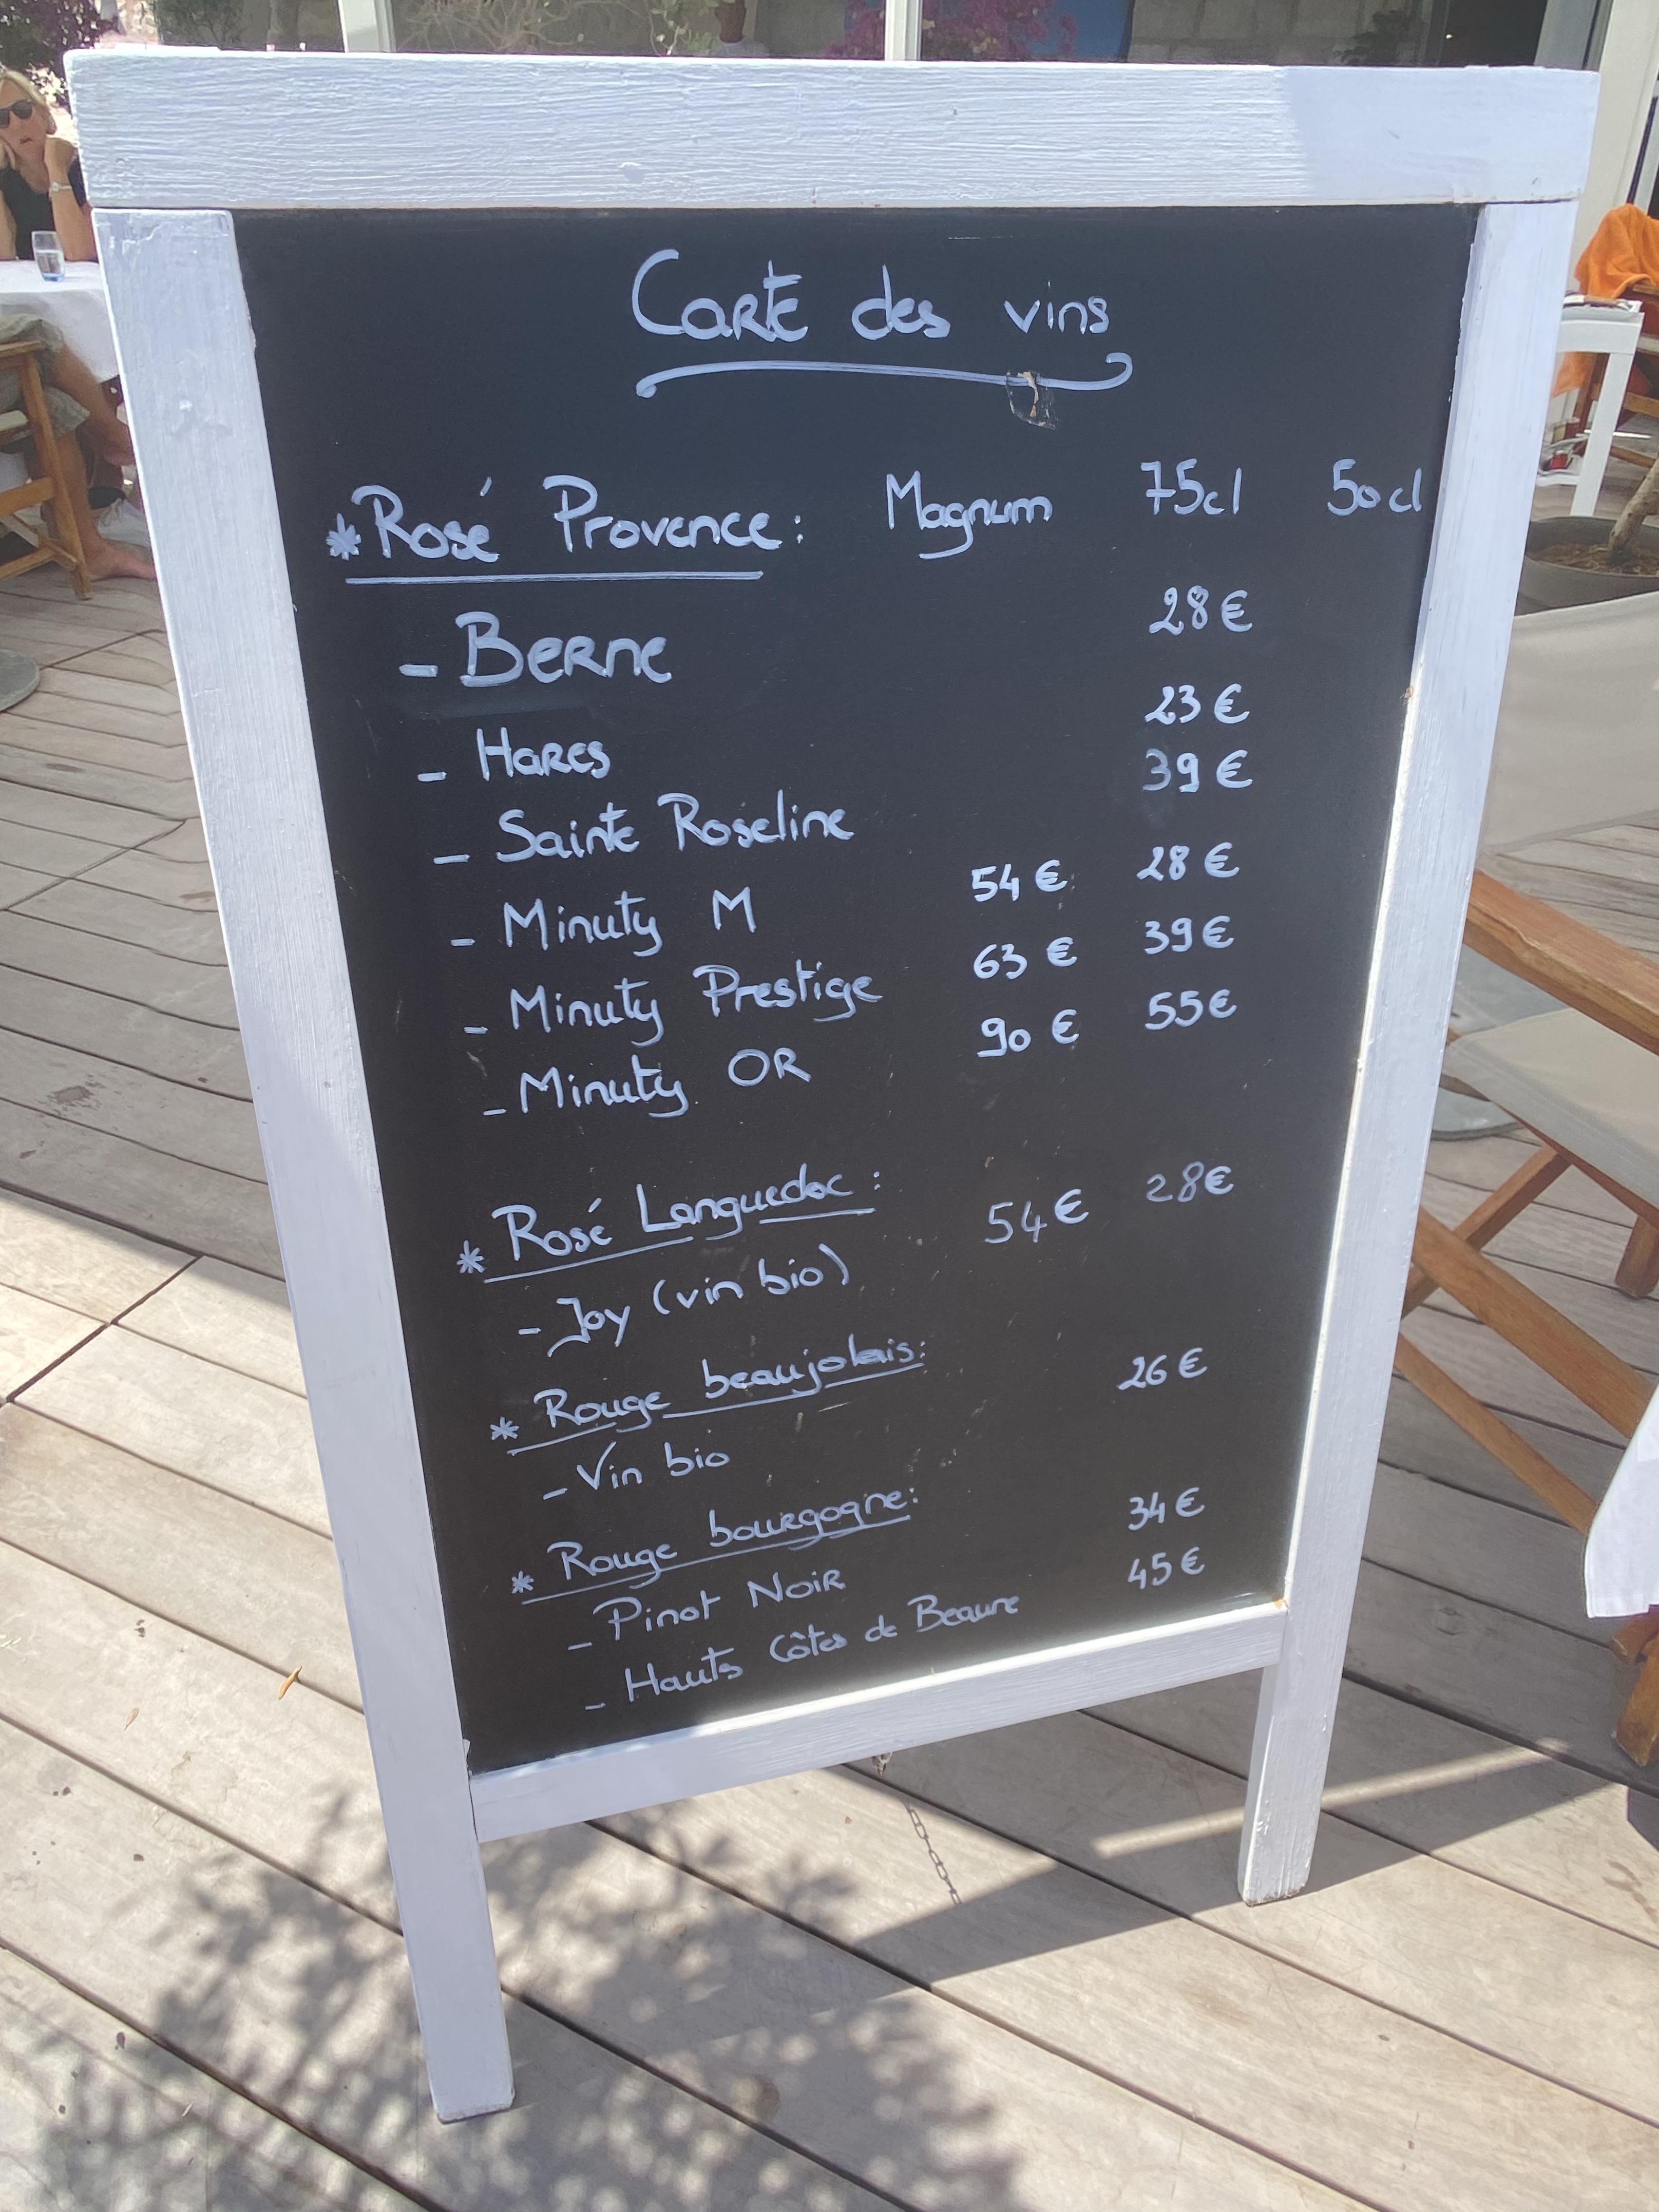 Carte des vins
*Rosé Provence: Magnum 75cl 50cl
- Berne 28€
- Hares 23€
- Sainte Roseline 39€
- Minuty M 54€ 28€
- Minuty Prestige 63€ 39€
- Minuty OR 90€ 55€
* Rosé Languedoc:
- Joy (vin bio) 54€ 28€
* Rouge beaujolais:
- Vin bio 26€
* Rouge bourgogne:
- Pinot Noir 34€
- Hauts Côtes de Beaune 45€